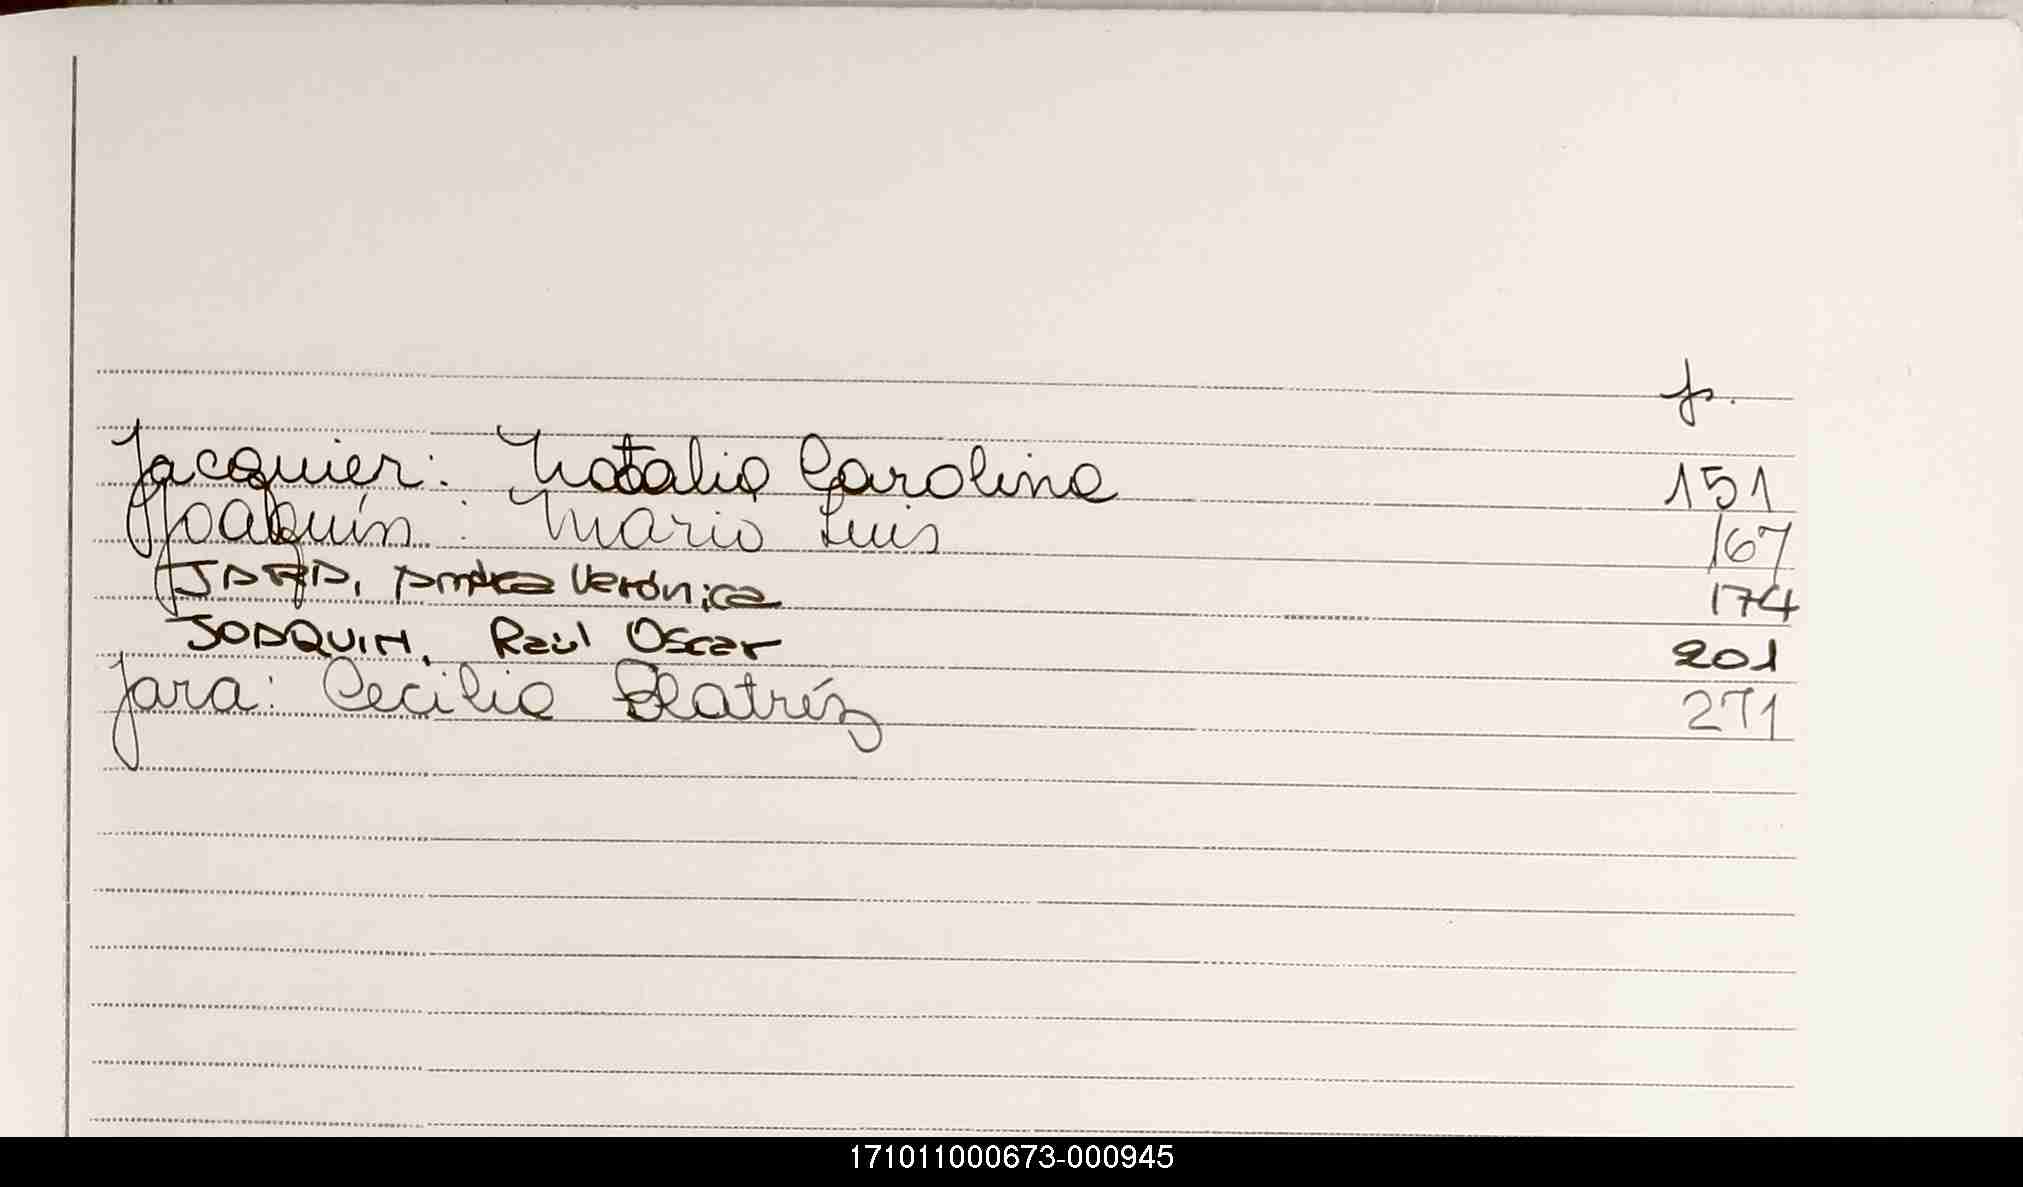 fs.
Jacquier: Natalia Carolina 151
Joaquín: Mario Luis 167
JARA, Andrea Verónica 174
JOAQUIN, Raúl Oscar 201
Jara: Cecilia Beatríz 271
171011000673-000945